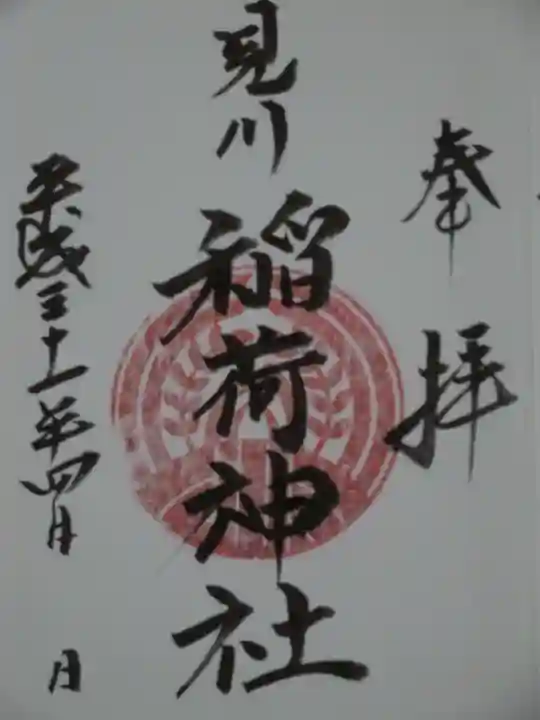 奉拝
見川
稲荷神社
平成三十一年四月 日